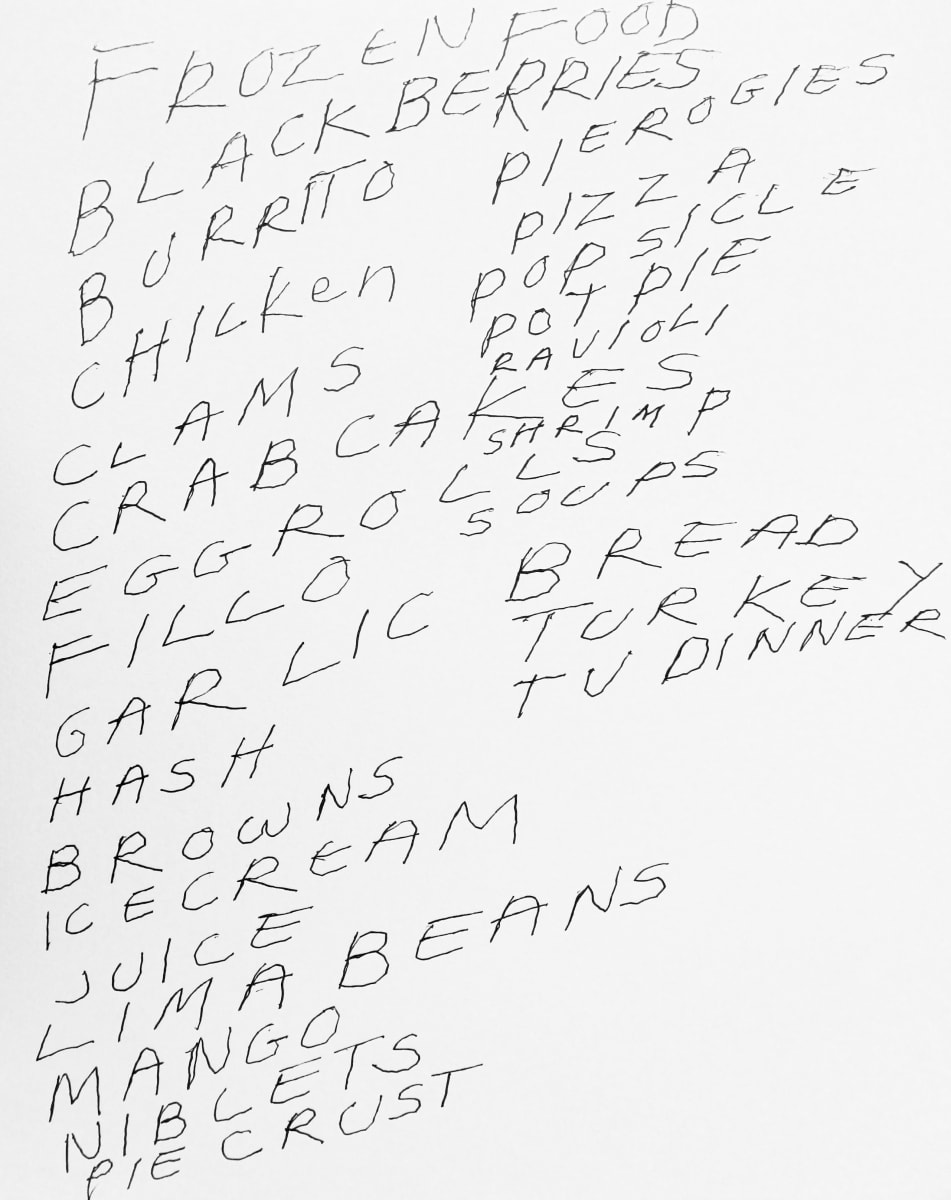 FROZEN FOOD
BLACKBERRIES
BURRITO
CHICken
CLAMS
CRAB CAKES
EGGROLLS
FILLO
GARLIC BREAD
HASH
BROWNS
ICECREAM
JUICE
LIMA BEANS
MANGO
NIBLETS
PIE CRUST
PIEROGIES
PIZZA
POPSICLE
POT PIE
RAVIOLI
SHRIMP
SOUPS
TURKEY
TV DINNER